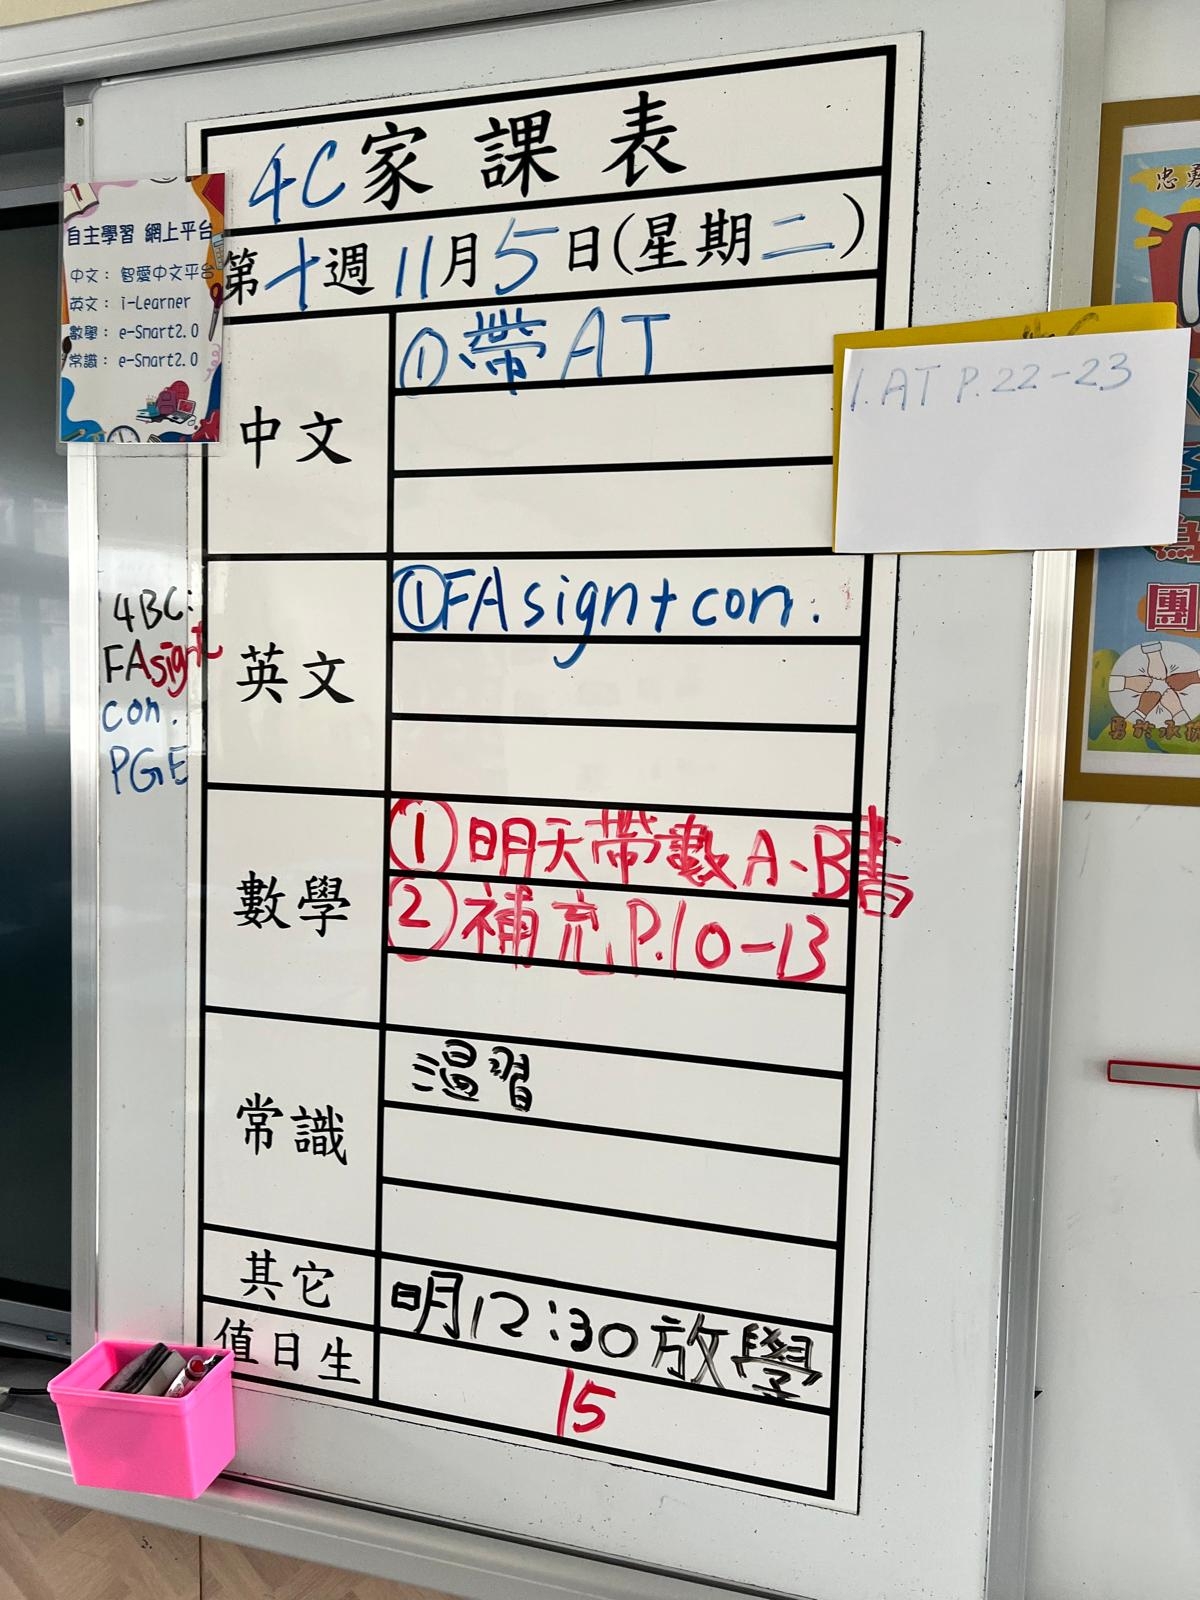 4C家課表
第十週11月5日(星期二)
自主學習 網上平台
中文： 智愛中文平台
英文： i-Learner
數學： e-Smart2.0
常識： e-Smart2.0
中文
①帶AT
1. AT P.22-23
英文
①FA sign+con.
4BC:
FAsign+
con.
PGE
數學
①明天帶數A、B書
②補充P.10-13
常識
溫習
其它
明12:30放學
值日生
15
忠勇
為
團
勇於承